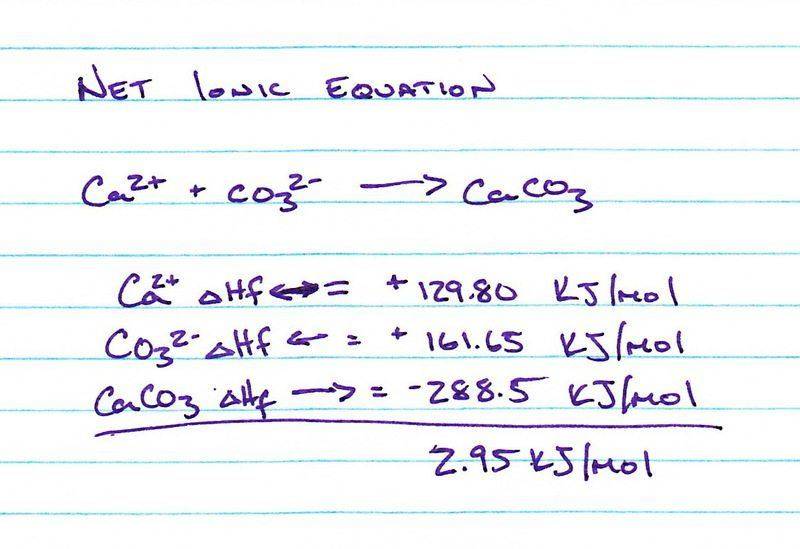 NET IONIC EQUATION
Ca²⁺ + CO₃²⁻ ⟶ CaCO₃
Ca²⁺ ΔHf ↔ = + 129.80 KJ/mol
CO₃²⁻ ΔHf ← = + 161.65 KJ/mol
CaCO₃ ΔHf → = -288.5 KJ/mol
2.95 KJ/mol